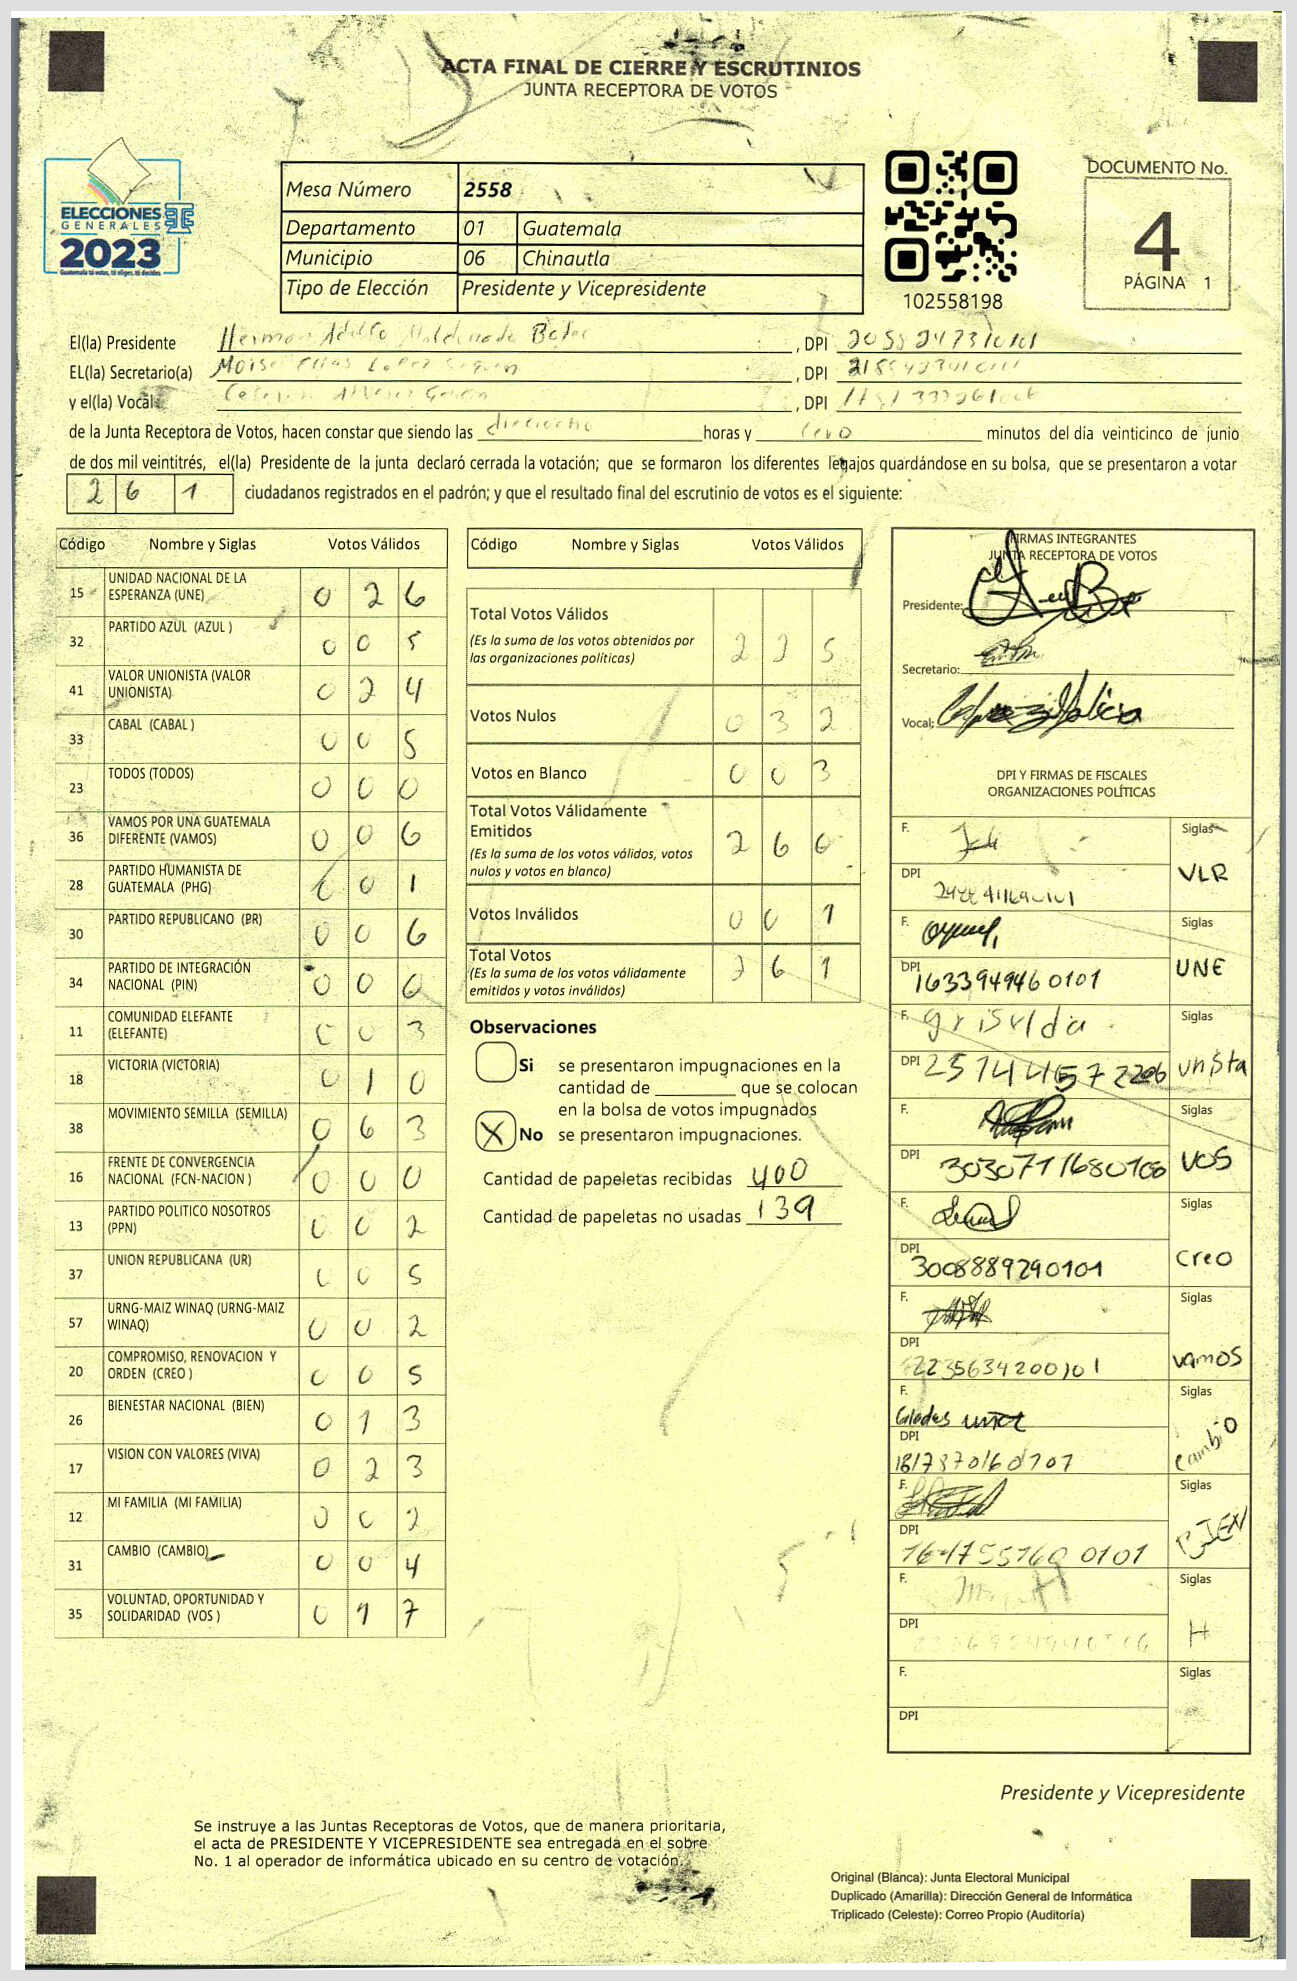 ACTA FINAL DE CIERRE Y ESCRUTINIOS
JUNTA RECEPTORA DE VOTOS
ELECCIONES
GENERALES
2023
Guatemala tú votas, tú eliges, tú decides
Mesa Número 2558
Departamento 01 Guatemala
Municipio 06 Chinautla
Tipo de Elección Presidente y Vicepresidente
102558198
DOCUMENTO No.
4
PÁGINA 1
El(la) Presidente Herman Adolfo Maldonado , DPI
EL(la) Secretario(a) Lopez , DPI
y el(la) Vocal: , DPI
de la Junta Receptora de Votos, hacen constar que siendo las dieciocho horas y cero minutos del día veinticinco de junio
de dos mil veintitrés, el(la) Presidente de la junta declaró cerrada la votación; que se formaron los diferentes legajos quardándose en su bolsa, que se presentaron a votar
2 6 1 ciudadanos registrados en el padrón; y que el resultado final del escrutinio de votos es el siguiente:
Código Nombre y Siglas Votos Válidos
15 UNIDAD NACIONAL DE LA ESPERANZA (UNE) 0 2 6
32 PARTIDO AZUL (AZUL ) 0 0 5
41 VALOR UNIONISTA (VALOR UNIONISTA) 0 2 4
33 CABAL (CABAL ) 0 0 5
23 TODOS (TODOS) 0 0 0
36 VAMOS POR UNA GUATEMALA DIFERENTE (VAMOS) 0 0 6
28 PARTIDO HUMANISTA DE GUATEMALA (PHG) 0 0 1
30 PARTIDO REPUBLICANO (PR) 0 0 6
34 PARTIDO DE INTEGRACIÓN NACIONAL (PIN) 0 0 0
11 COMUNIDAD ELEFANTE (ELEFANTE) 0 0 3
18 VICTORIA (VICTORIA) 0 1 0
38 MOVIMIENTO SEMILLA (SEMILLA) 0 6 3
16 FRENTE DE CONVERGENCIA NACIONAL (FCN-NACION ) 0 0 0
13 PARTIDO POLITICO NOSOTROS (PPN) 0 0 2
37 UNION REPUBLICANA (UR) 0 0 5
57 URNG-MAIZ WINAQ (URNG-MAIZ WINAQ) 0 0 2
20 COMPROMISO, RENOVACION Y ORDEN (CREO ) 0 0 5
26 BIENESTAR NACIONAL (BIEN) 0 1 3
17 VISION CON VALORES (VIVA) 0 2 3
12 MI FAMILIA (MI FAMILIA) 0 0 2
31 CAMBIO (CAMBIO) 0 0 4
35 VOLUNTAD, OPORTUNIDAD Y SOLIDARIDAD (VOS ) 0 1 7
Código Nombre y Siglas Votos Válidos
Total Votos Válidos 2 2 5
(Es la suma de los votos obtenidos por
las organizaciones políticas)
Votos Nulos 0 3 2
Votos en Blanco 0 0 3
Total Votos Válidamente
Emitidos 2 6 0
(Es la suma de los votos válidos, votos
nulos y votos en blanco)
Votos Inválidos 0 0 1
Total Votos 2 6 1
(Es la suma de los votos válidamente
emitidos y votos inválidos)
Observaciones
Si se presentaron impugnaciones en la
cantidad de ________ que se colocan
en la bolsa de votos impugnados
X No se presentaron impugnaciones.
Cantidad de papeletas recibidas 400
Cantidad de papeletas no usadas 139
FIRMAS INTEGRANTES
JUNTA RECEPTORA DE VOTOS
Presidente:
Secretario:
Vocal:
DPI Y FIRMAS DE FISCALES
ORGANIZACIONES POLÍTICAS
F. Siglas
DPI VLR
F. Siglas
DPI 1633949460101 UNE
F. Griselda Siglas
DPI 2574445722206
F. Siglas
DPI 3030711680108 VOS
F. Siglas
DPI 3008889290101 CREO
F. Siglas
DPI 2235634200101 VAMOS
F. Siglas
DPI cambio
F. Siglas
DPI BIEN
F. Siglas
DPI H
F. Siglas
DPI
Presidente y Vicepresidente
Se instruye a las Juntas Receptoras de Votos, que de manera prioritaria,
el acta de PRESIDENTE Y VICEPRESIDENTE sea entregada en el sobre
No. 1 al operador de informática ubicado en su centro de votación.
Original (Blanca): Junta Electoral Municipal
Duplicado (Amarilla): Dirección General de Informática
Triplicado (Celeste): Correo Propio (Auditoría)